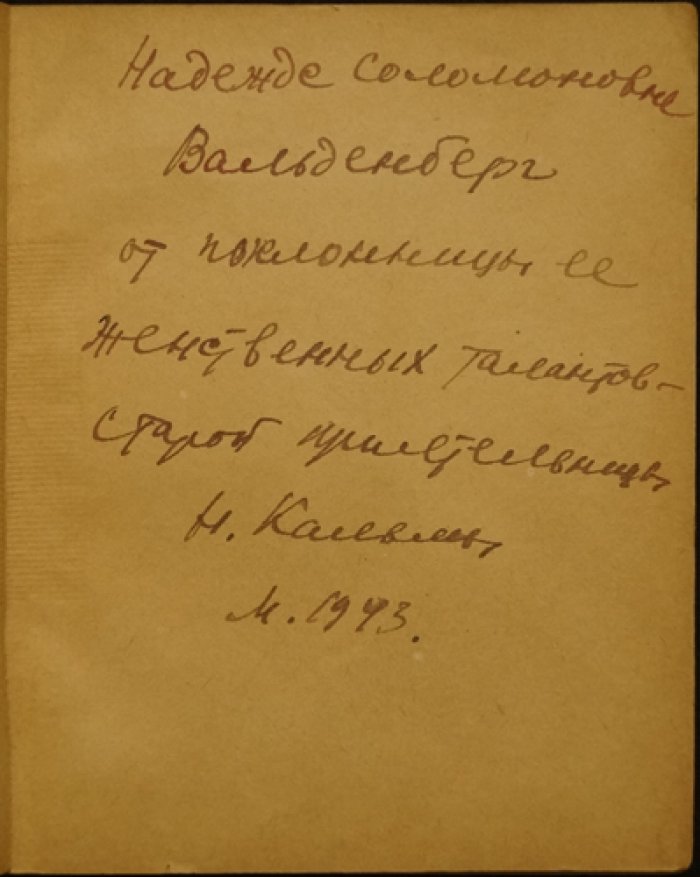 Надежде Соломоновне
Вальденберг
от поклонницы ее
женственных талантов –
старой приятельницы
Н. Кальма,
М. 1943.